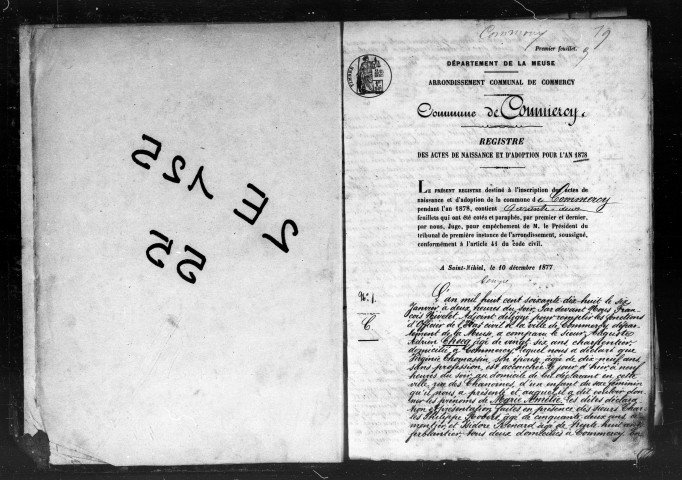 2 E 125
55
Commercy
19
Premier feuillet.
DÉPARTEMENT DE LA MEUSE
ARRONDISSEMENT COMMUNAL DE COMMERCY
Commune de Commercy
REGISTRE
DES ACTES DE NAISSANCE ET D'ADOPTION POUR L'AN 1878
LE PRÉSENT REGISTRE destiné à l'inscription des actes de
naissance et d'adoption de la commune de Commercy
pendant l'an 1878, contient
feuillets qui ont été cotés et paraphés, par premier et dernier,
par nous, Juge, pour empêchement de M. le Président du
tribunal de première instance de l'arrondissement, soussigné,
conformément à l'article 41 du code civil.
A Saint-Mihiel, le 10 décembre 1877
N° 1.
C.
L'an mil huit cent soixante dix-huit le six
Janvier à deux heures du soir, Par devant Nous Fran-
çois Adjoint délégué pour remplir les fonctions
d'Officier de l'Etat civil de la ville de Commercy, dépar-
tement de la Meuse, a comparu le sieur Auguste
Adrien âgé de vingt six ans, charpentier,
domicilié à Commercy, lequel nous a déclaré que
Virginie Thomassin, son épouse, âgée de dix-neuf ans
sans profession, est accouchée le jour d'hier à neuf
heures du soir, au domicile de lui déclarant en cette
ville, rue des Chanoines, d'un enfant du sexe féminin
qu'il nous a présenté et auquel il a dit vouloir don-
ner les prénoms de Marie Amélie, les dites déclara-
tion et présentation faites en présence des sieurs Char-
les Philippe Robert, âgé de cinquante deux ans,
et Isidore Renard, âgé de trente huit ans
ferblantier, tous deux domiciliés à Commercy,